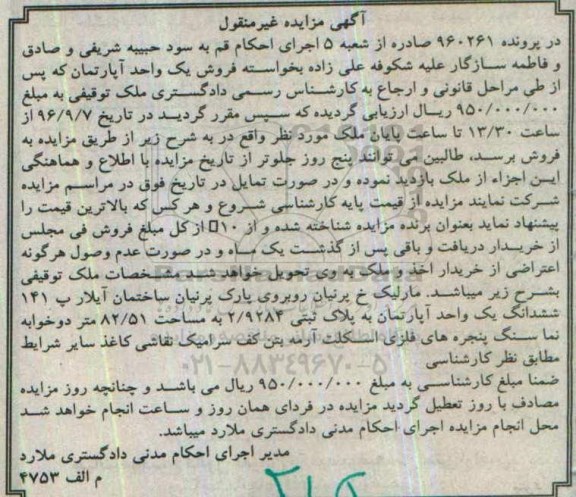 آگهی مزایده غیرمنقول
در پرونده ۹۶۰۲۶۱ صادره از شعبه ۵ اجرای احکام قم به سود حبیبه شریفی و صادق
و فاطمه سازگار علیه شکوفه علی زاده بخواسته فروش یک واحد آپارتمان که پس
از طی مراحل قانونی و ارجاع به کارشناس رسمی دادگستری ملک توقیفی به مبلغ
۹۵۰/۰۰۰/۰۰۰ ریال ارزیابی گردیده که سپس مقرر گردید در تاریخ ۹۶/۹/۷ از
ساعت ۱۳/۳۰ تا ساعت پایان ملک مورد نظر واقع در به شرح زیر از طریق مزایده به
فروش برسد، طالبین می توانند پنج روز جلوتر از تاریخ مزایده با اطلاع و هماهنگی
این اجراء از ملک بازدید نموده و در صورت تمایل در تاریخ فوق در مراسم مزایده
شرکت نمایند مزایده از قیمت پایه کارشناسی شروع و هر کس که بالاترین قیمت را
پیشنهاد نماید بعنوان برنده مزایده شناخته شده و از ۱۰□ از کل مبلغ فروش فی مجلس
از خریدار دریافت و باقی پس از گذشت یک ماه و در صورت عدم وصول هرگونه
اعتراضی از خریدار اخذ و ملک به وی تحویل خواهد شد. مشخصات ملک توقیفی
بشرح زیر میباشد. مارلیک خ پرنیان روبروی پارک پرنیان ساختمان آیلار پ ۱۴۱
ششدانگ یک واحد آپارتمان به پلاک ثبتی ۲/۹۲۸۴ به مساحت ۸۲/۵۱ متر دوخوابه
نما سنگ پنجره های فلزی اسکلت آرمه بتن کف سرامیک نقاشی کاغذ سایر شرایط
مطابق نظر کارشناسی
۰۲۱-۸۸۳۴۹۶۷۰-۵
ضمنا مبلغ کارشناسی به مبلغ ۹۵۰/۰۰۰/۰۰۰ ریال می باشد و چنانچه روز مزایده
مصادف با روز تعطیل گردید مزایده در فردای همان روز و ساعت انجام خواهد شد
محل انجام مزایده اجرای احکام مدنی دادگستری ملارد میباشد.
مدیر اجرای احکام مدنی دادگستری ملارد
م الف ۴۷۵۳